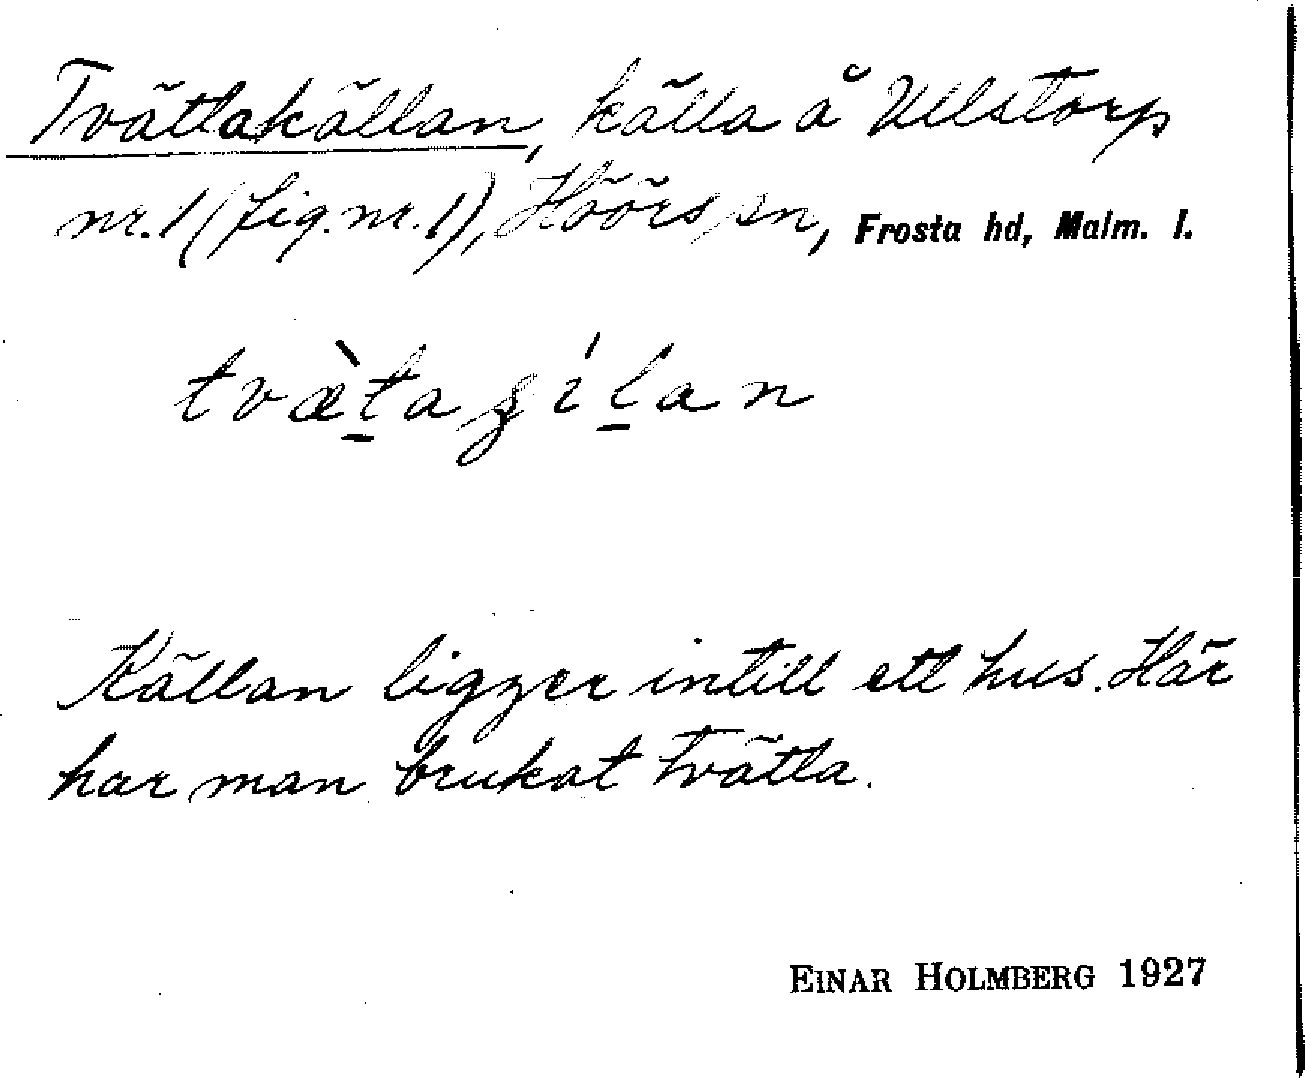 Tvättakällan, källa å Ullstorp
nr. 1 (fig. nr. 1), Höörs sn, Frosta hd, Malm. l.
tvæ̀t̠aʂíl̠an
Källan ligger intill ett hus. Här
har man brukat tvätta.
EINAR HOLMBERG 1927